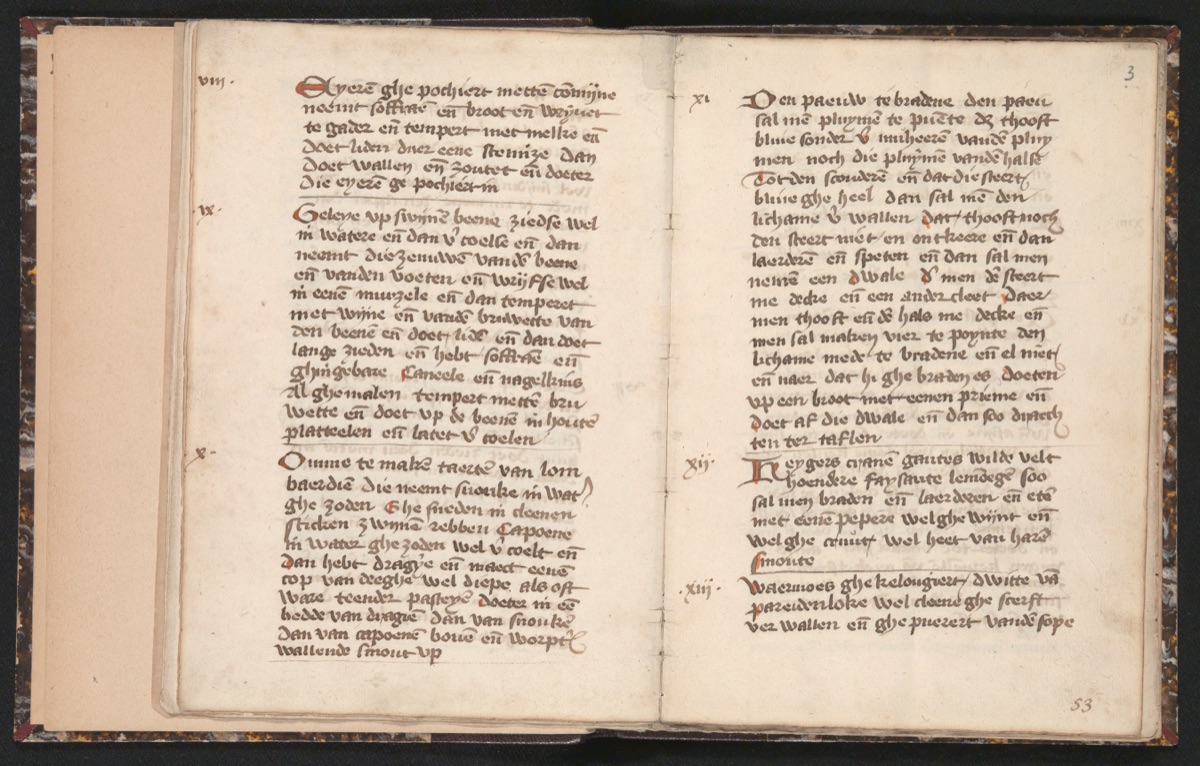 viii.
Eyerē ghe pochiert mettē cōmijne
neemt soffraē en̄ broot en̄ wrijuet
te gader en̄ tempert met melke en̄
doet liden duer eene stemijne dan
doet wallen en̄ zoutet en̄ doeter
die eyerē ge pochiert in
ix.
Geleye vp swijnē beene ziedse wel
in watere en̄ dan v̄coelse en̄ dan
neemt die zenuwē vandē beene
en̄ vanden voeten en̄ wrijfse wel
in eenē muezele en̄ dan temperet
met wijne en̄ vandē bruwette van
den beenē en̄ doet lidē en̄ dan doet
lange zieden en̄ hebt soffraē en̄
ghingebare Caneele en̄ nagelkins
Al ghemalen tempert mettē bru
wette en̄ doet vp de beenē in houtē
platteelen en̄ latet v̄coelen
x.
Omme te makē taertē van lom
baerdiē die neemt snouke in wat̄
ghe zoden Ghe sneden in cleenen
sticken zwijnē rebben Capoene
in water ghe zoden wel v̄coelt en̄
Dan hebt dragye en̄ maect eenē
cop van deeghe wel diepe als oft
ware teender pasteyē doeter in eē
bedde van dragie dan van snoukē
dan van capoenē bouē en̄ worpt
wallende smout vp
3
xi
Den paeuw te bradene den paeu
sal mē pluymē te puēte dz thooft
bliue sonder v̄ miheerē vandē pluy
men noch die pluymē vandē halse
Tot den scouderē en̄ dat die steert
bliue ghe heel dan sal mē den
lichame v̄ wallen dat thooft noch
den steert niet en ontkeere en̄ dan
laerderē en̄ speten en̄ dan sal men
nemē een dwale d̄ men dē steert
me decke en̄ een ander cleet Daer
men thooft en̄ dē hals me decke en̄
men sal maken vier te poynte den
lichame mede te bradene en̄ el niet
en̄ naer dat hi ghe braden es doeten
vp een broot met eenen prieme en̄
doet af die dwale en̄ dan soe draech
ten ter taflen
xii
Heygers cranē gantes wilde velt
hoendere faysante
sal men braden en̄ laerderen en̄ etē
met eenē pepere wel ghe wijnt en̄
wel ghe cruut wel heet van harē
smoute
xiii
Waermoes ghe kelougiert dwitte vā
pareidenloke wel cleene ghe scerft
ver wallen en̄ ghe puerert vandē sope
53